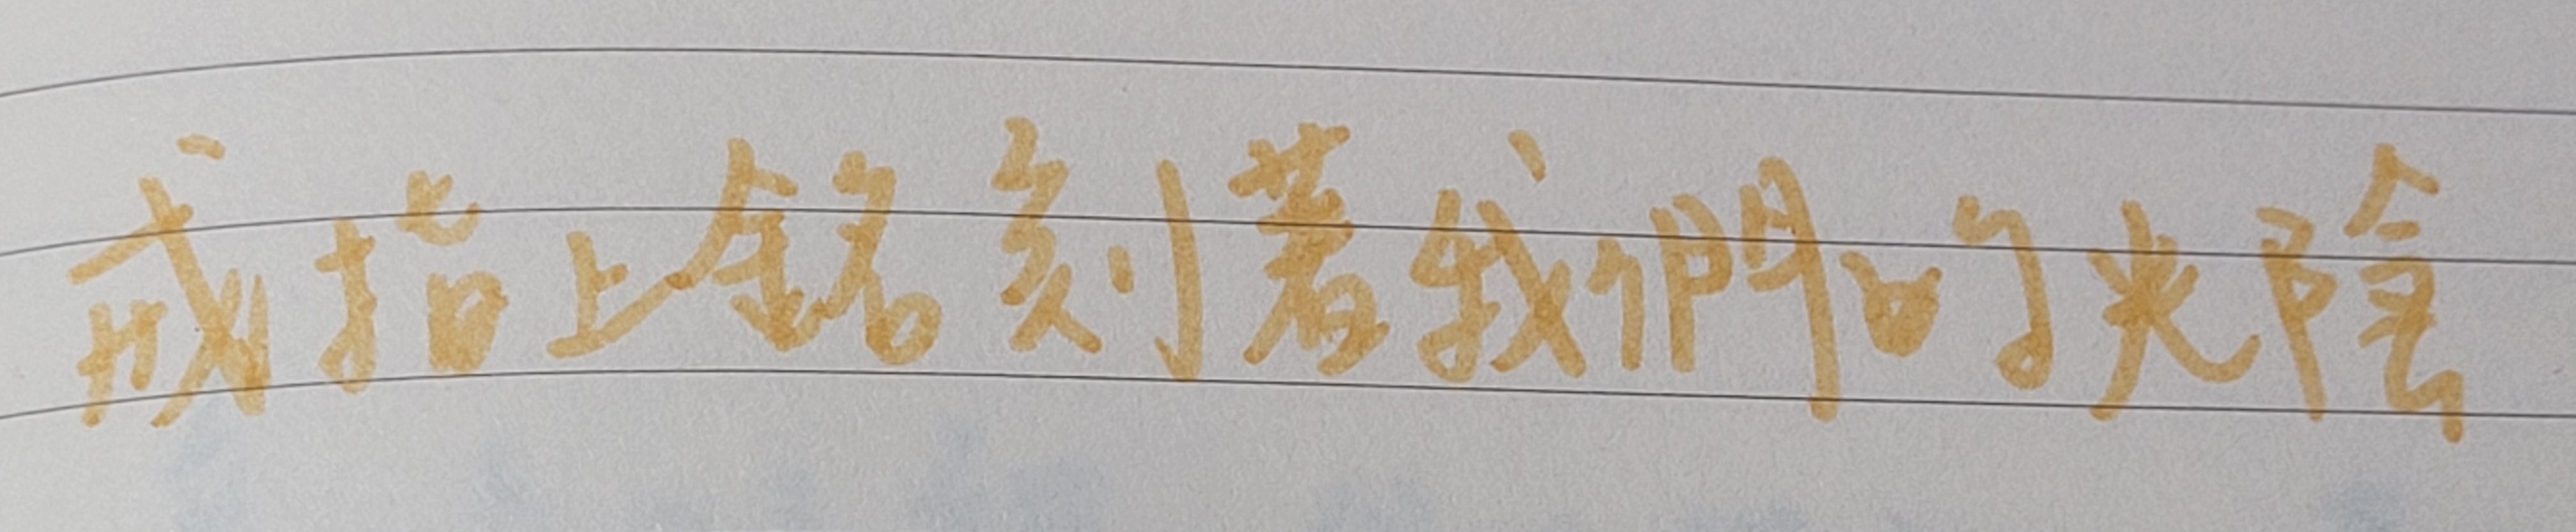 戒指上銘刻著我們的光陰